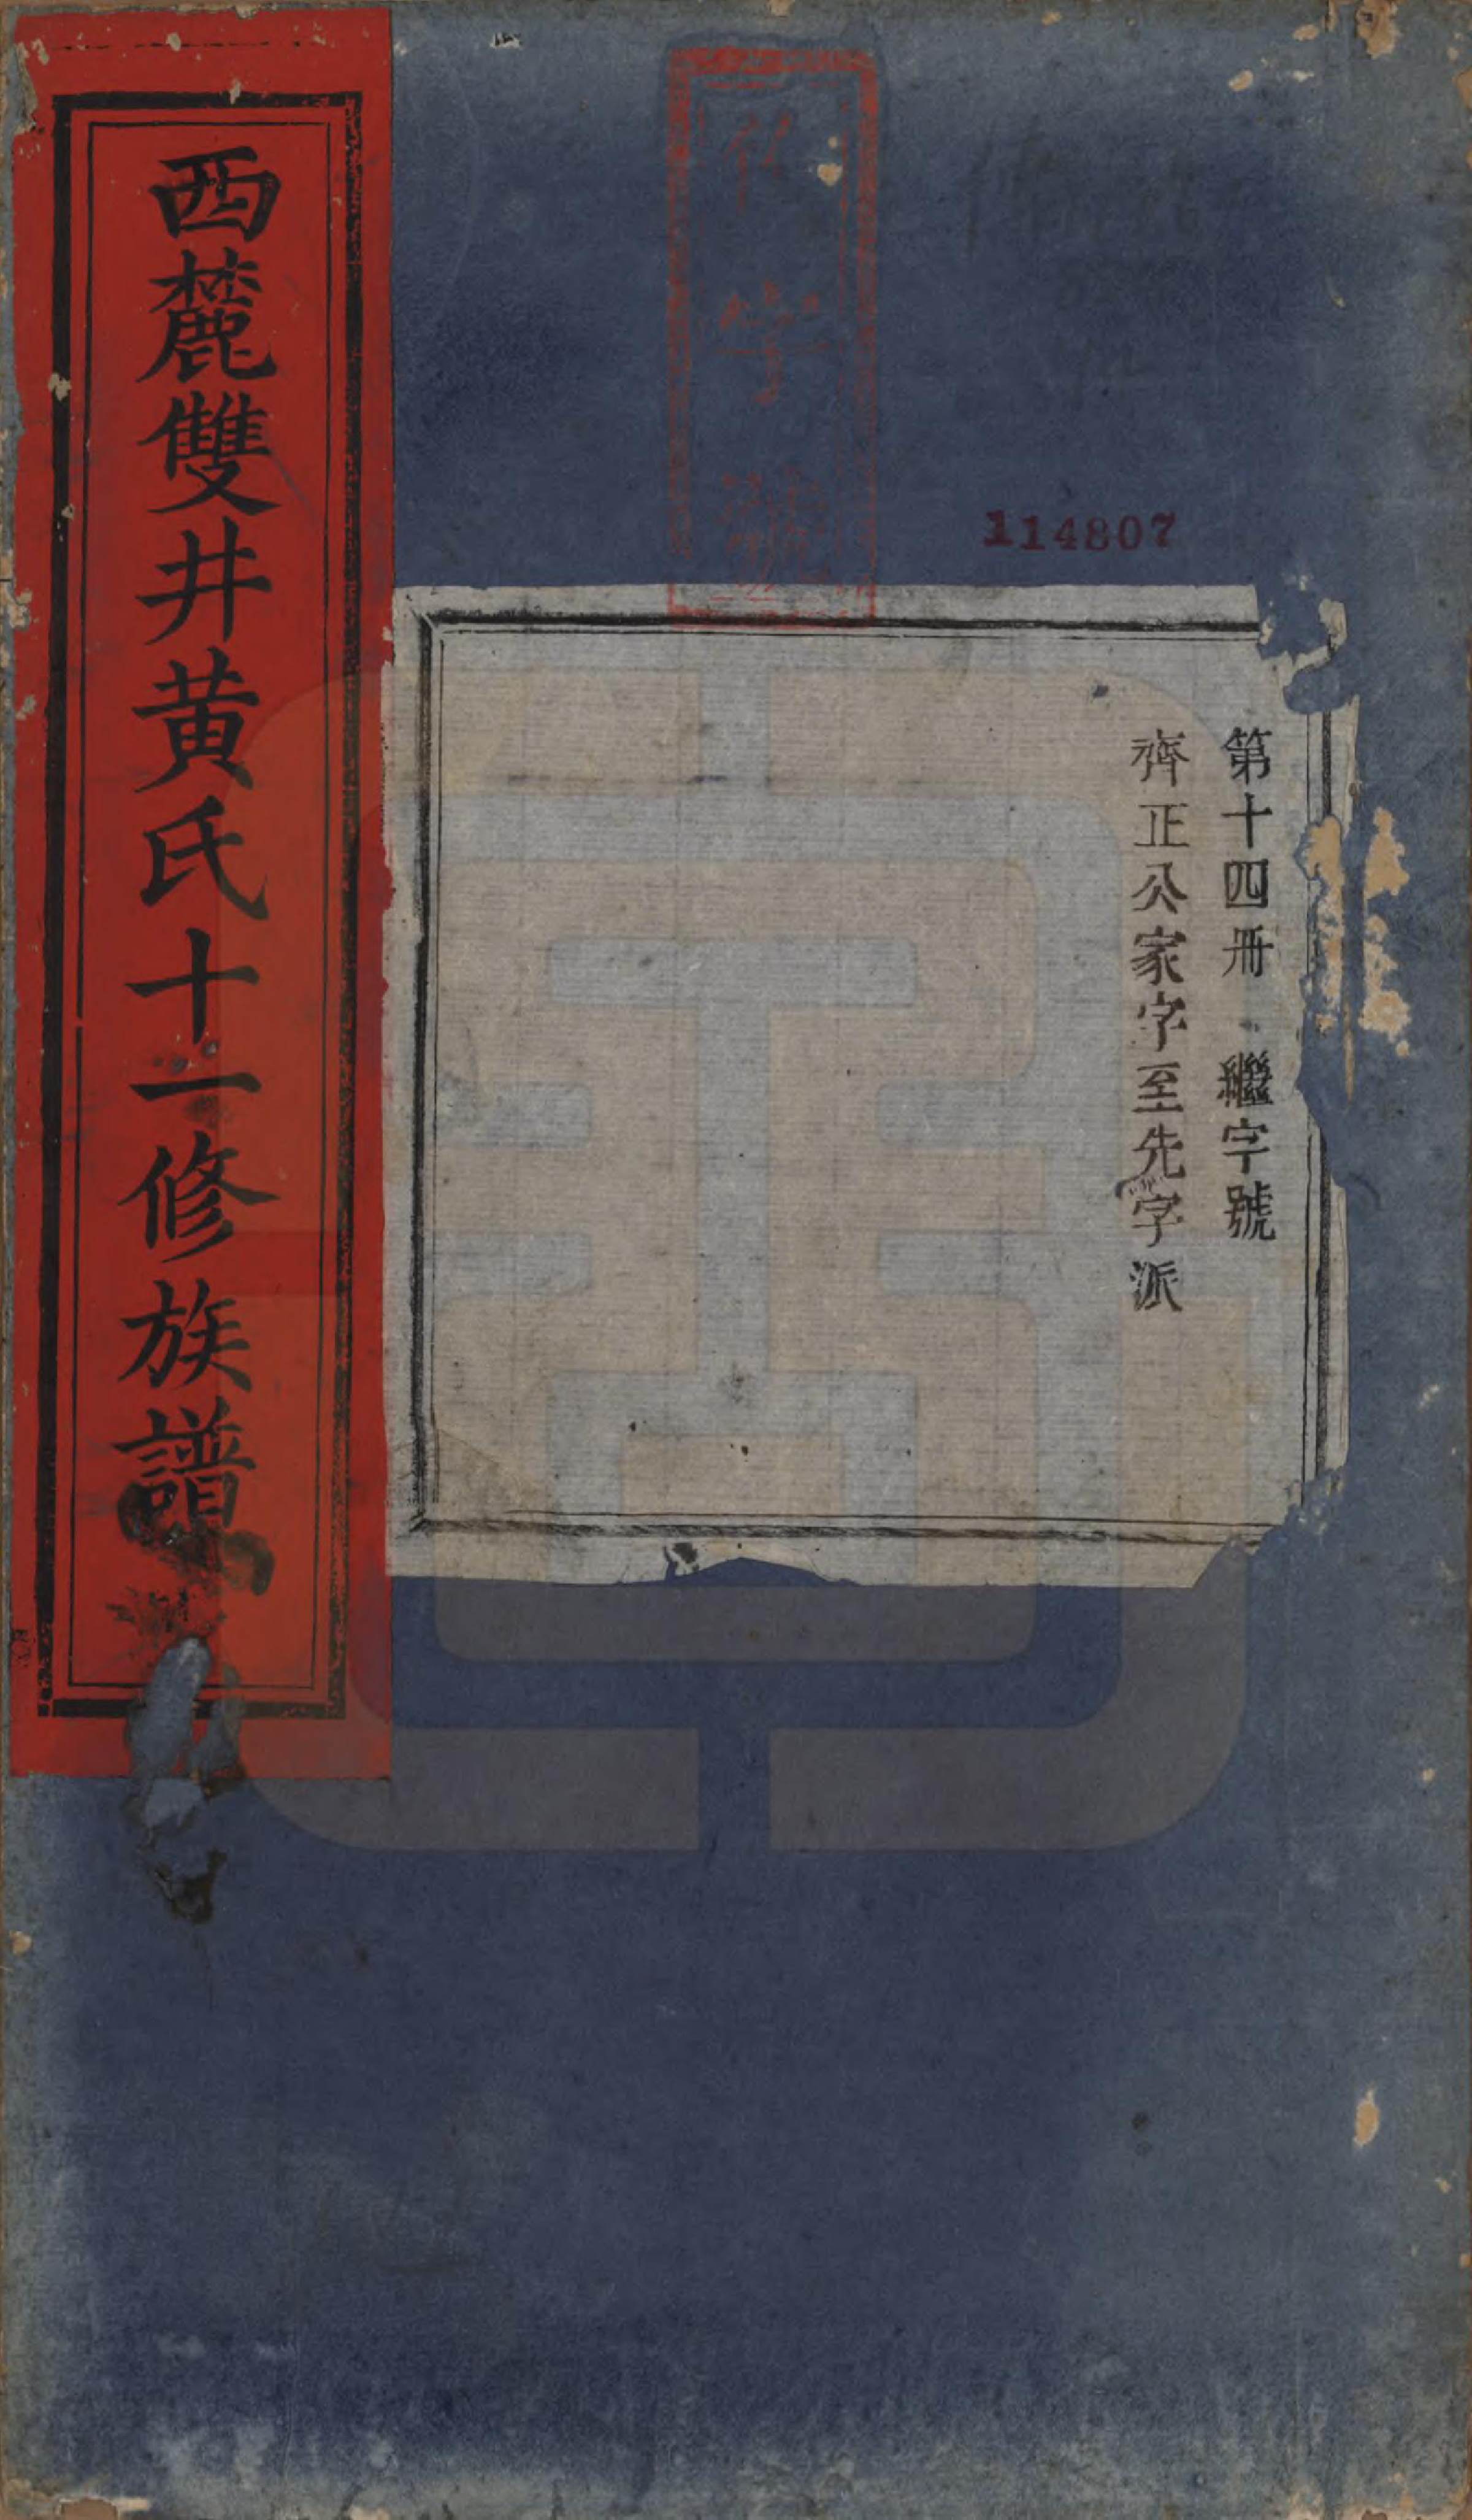 114807
第十四冊　繼字號
齊正公家字至先字派
西麓雙井黄氏十一修族譜